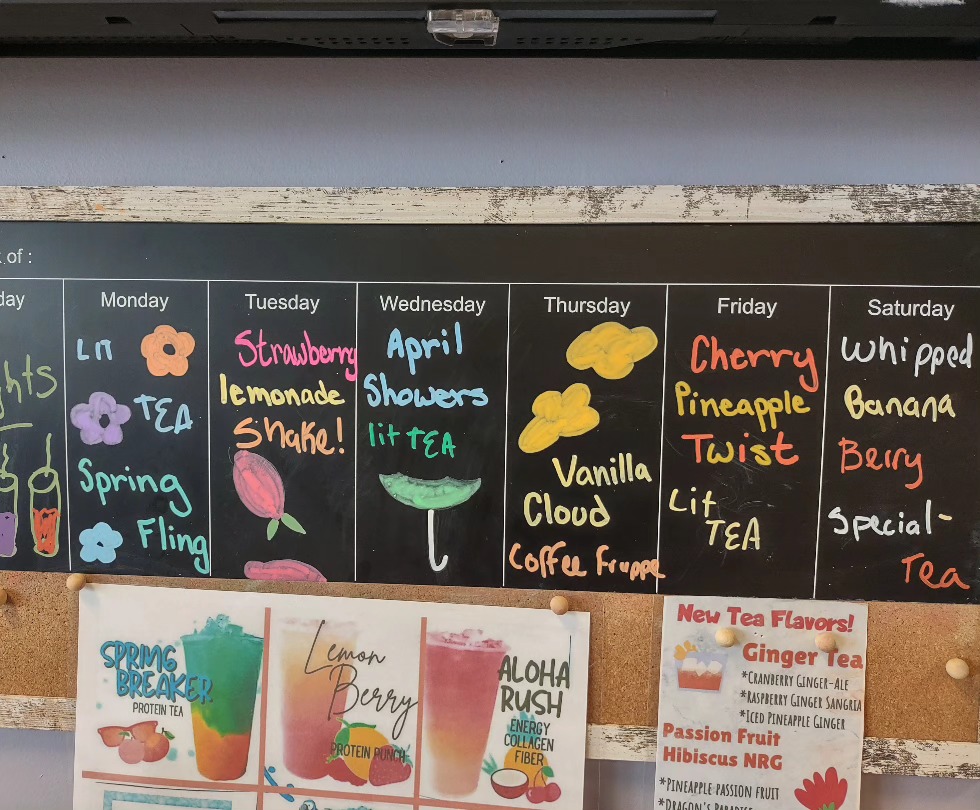 of :
day
Monday
Tuesday
Wednesday
Thursday
Friday
Saturday
LIT
TEA
Spring
Fling
Strawberry
lemonade
Shake!
April
Showers
lit TEA
Vanilla
Cloud
Coffee Frappe
Cherry
Pineapple
Twist
Lit
TEA
Whipped
Banana
Berry
Special-
Tea
SPRING
BREAKER
PROTEIN TEA
Lemon
Berry
PROTEIN PUNCH
ALOHA
RUSH
ENERGY
COLLAGEN
FIBER
New Tea Flavors!
Ginger Tea
*CRANBERRY GINGER-ALE
*RASPBERRY GINGER SANGRIA
*ICED PINEAPPLE GINGER
Passion Fruit
Hibiscus NRG
*PINEAPPLE PASSION FRUIT
*DRAGON'S PARADISE